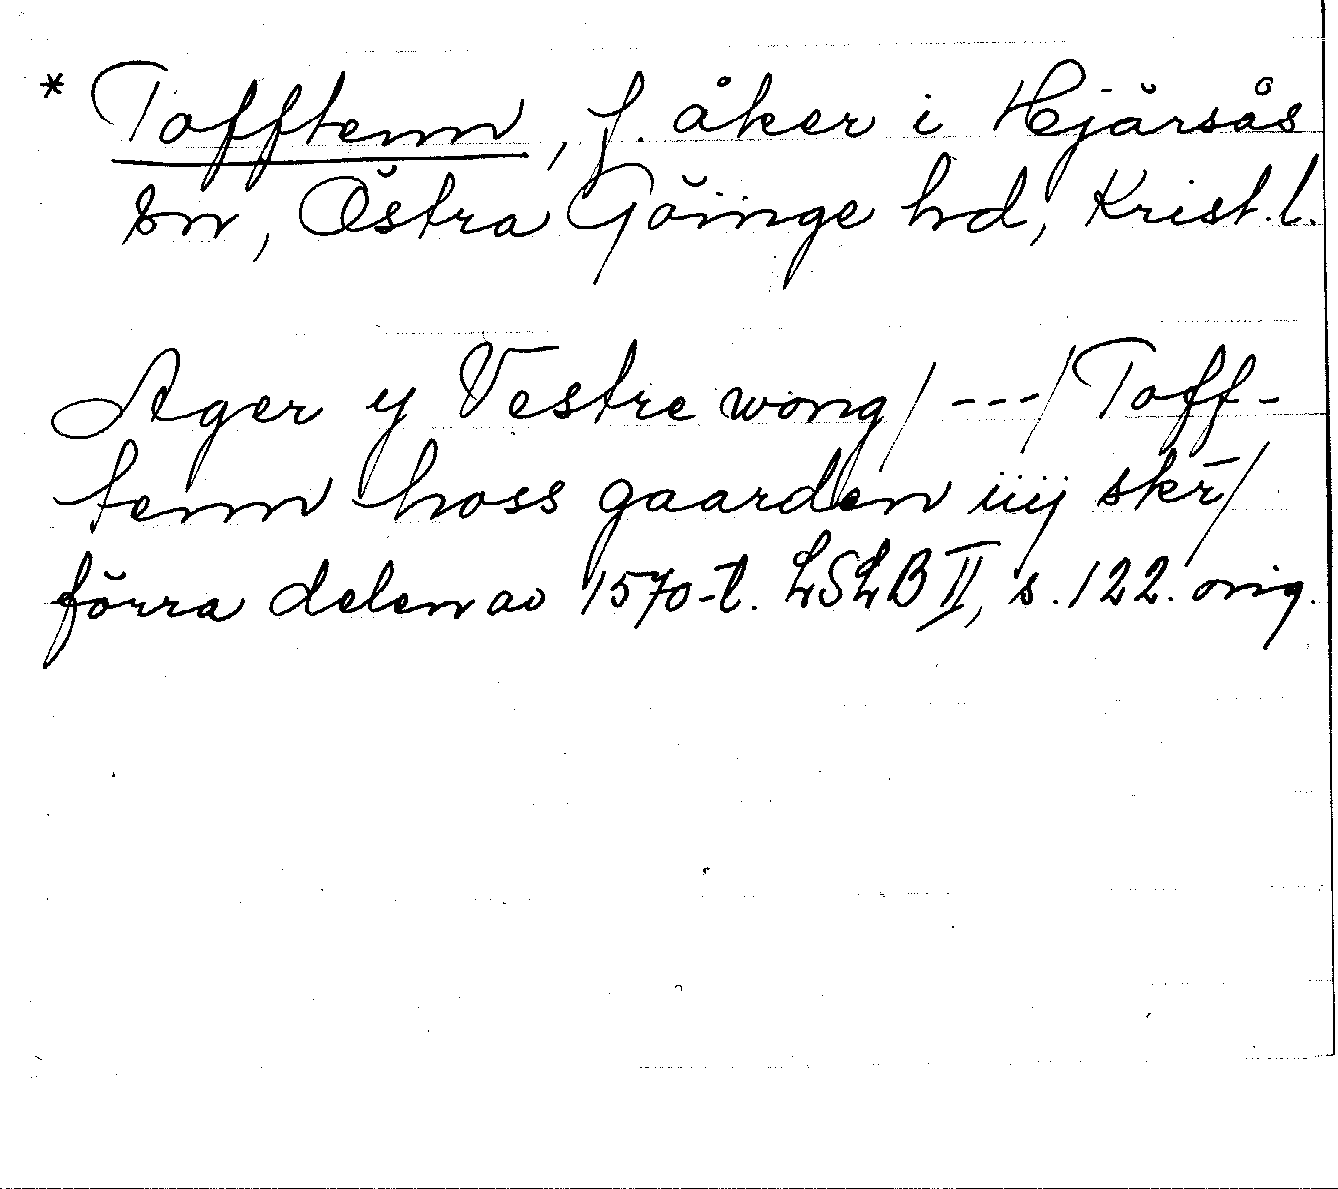 * Tofftenn, f. åker i Hjärsås
sn, Östra Göinge hd, Krist.l.
Ager y Vestre wong / --- / Toff-
tenn hoss gaarden iiij skr̄ /
förra delen av 1570-t. LSLB II, s. 122. orig.